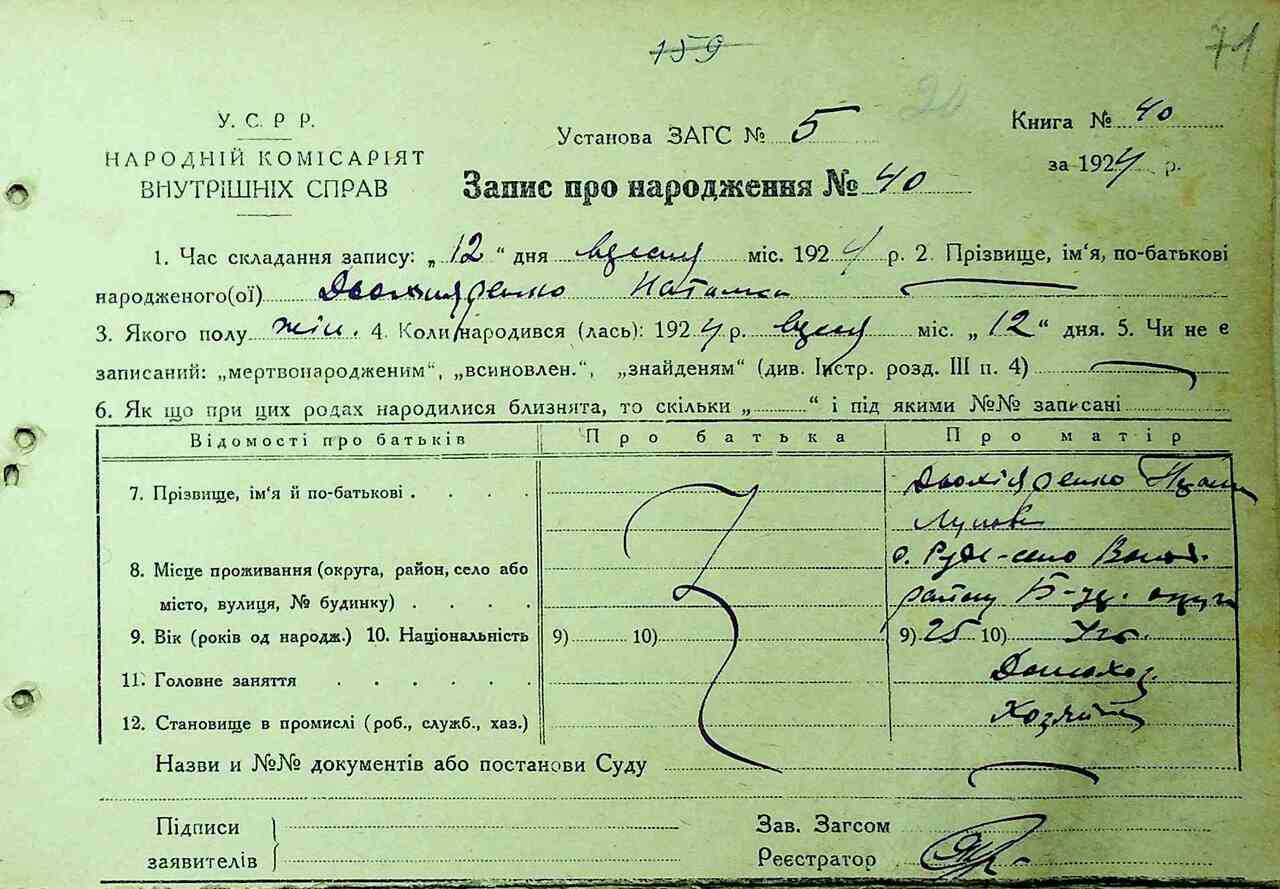 159
71
У. С. Р. Р.
НАРОДНІЙ КОМІСАРІЯТ
ВНУТРІШНІХ СПРАВ
Установа ЗАГС № 5
Книга № 40
за 1924 р.
Запис про народження № 40
1. Час складання запису: „12“ дня вересня міс. 1924 р. 2. Прізвище, ім‘я, по-батькові
народженого(ої)
3. Якого полу жін. 4. Коли народився (лась): 1924 р. вересня міс. „12“ дня. 5. Чи не є
записаний: „мертвонародженим“, „всиновлен.“, „знайденям“ (див. Інстр. розд. III п. 4)
6. Як що при цих родах народилися близнята, то скільки „ “ і під якими №№ записані
Відомості про батьків Про батька Про матір
7. Прізвище, ім‘я й по-батькові
8. Місце проживання (округа, район, село або
с. Руде-село
місто, вулиця, № будинку)
району Б-Це. округи
9. Вік (років од народж.) 10. Національність 9) 10) 9) 25 10) Укр.
11. Головне заняття Домохоз.
12. Становище в промислі (роб., служб., хаз.) Хозяйка
Назви и №№ документів або постанови Суду
Підписи
заявителів
Зав. Загсом
Реєстратор